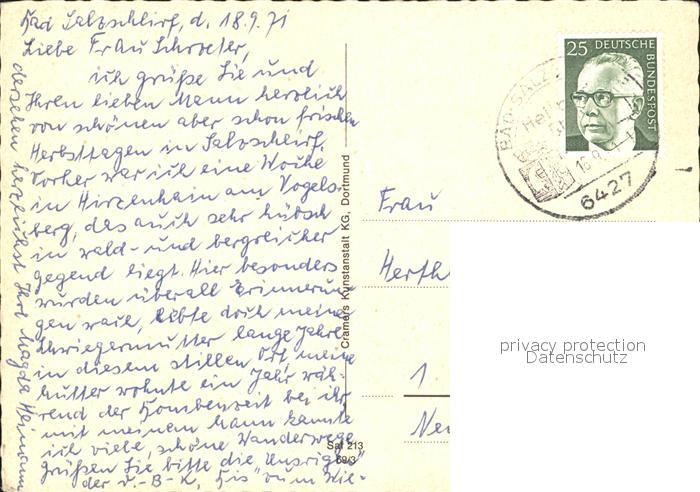 Bad Salzschlirf, d. 18.9.71
Liebe Frau Schroeter,
ich grüße Sie und
Ihren lieben Mann herzlich
von schönen aber schon frischen
Herbsttagen in Salzschlirf.
Vorher war ich eine Woche
in Hirzenhain am Vogels-
berg, das auch sehr hübsch
in wald- und bergreicher
gegend liegt. Hier besonders
wurden überall Erinnerun-
gen wach, lebte doch meine
Schwiegermutter lange Jahre
in diesem stillen Ort, meine
Mutter wohnte ein Jahr wäh-
rend der Bombenzeit bei ihr
mit meinem Mann kannte
ich viele, schöne Wanderwege
grüßen Sie bitte die "Unsrigen"
der V.-B-K, bis zum Wie-
dersehen herzlichst Ihre Magda Heimann
Cramers Kunstanstalt KG, Dortmund
Sal 213
69/3
25 DEUTSCHE
BUNDESPOST
BAD SALZ
Heil
6427
Frau
Herth
1.
Ne
privacy protection
Datenschutz